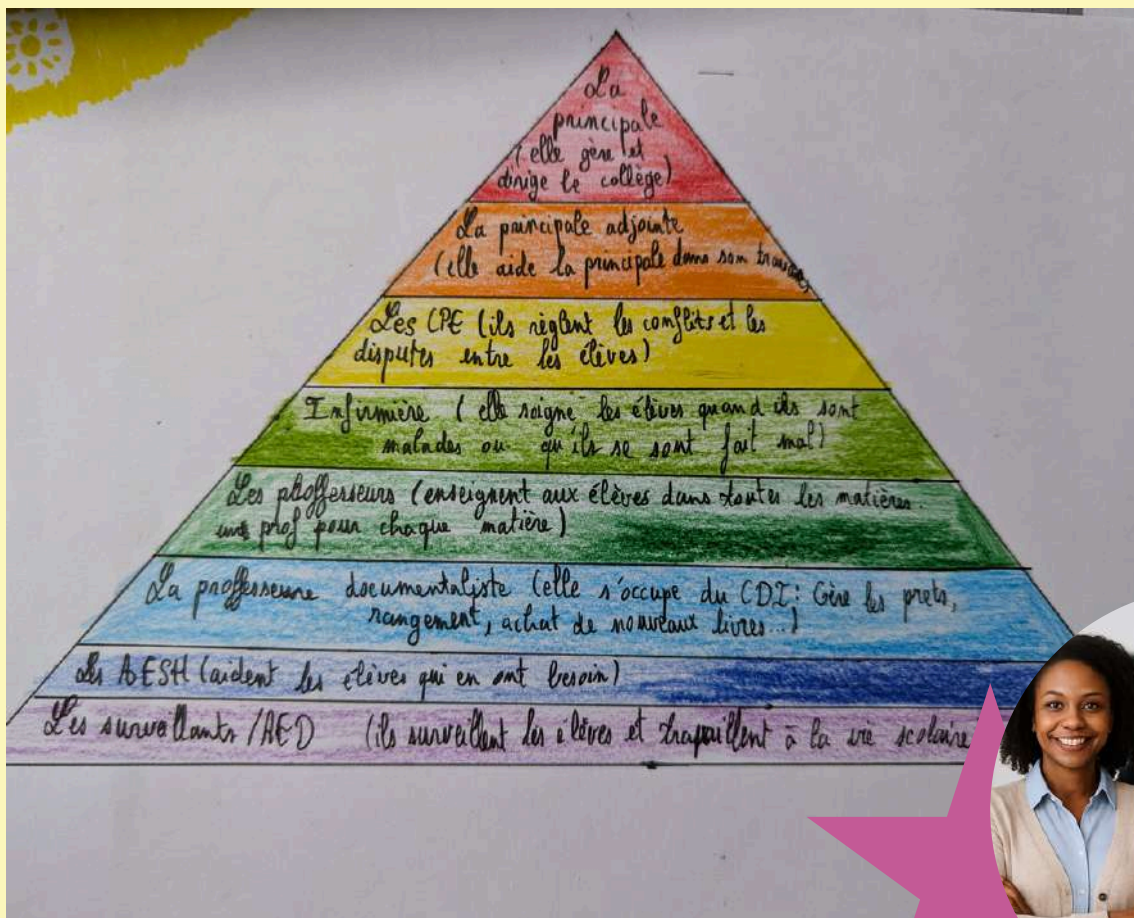 La
principale
(elle gère et
dirige le collège)
La principale adjointe
(elle aide la principale dans son travail
Les CPE (ils règlent les conflits et les
disputes entre les élèves)
Infirmière (elle soigne les élèves quand ils sont
malades ou qu'ils se sont fait mal)
Les proffesseurs (enseignent aux élèves dans toutes les matières.
un prof pour chaque matière)
La proffesseure documentaliste (elle s'occupe du CDI: Gère les prets,
rangement, achat de nouveaux livres...)
Les AESH (aident les élèves qui en ont besoin)
Les surveillants/AED (ils surveillent les élèves et travaillent à la vie scolaire